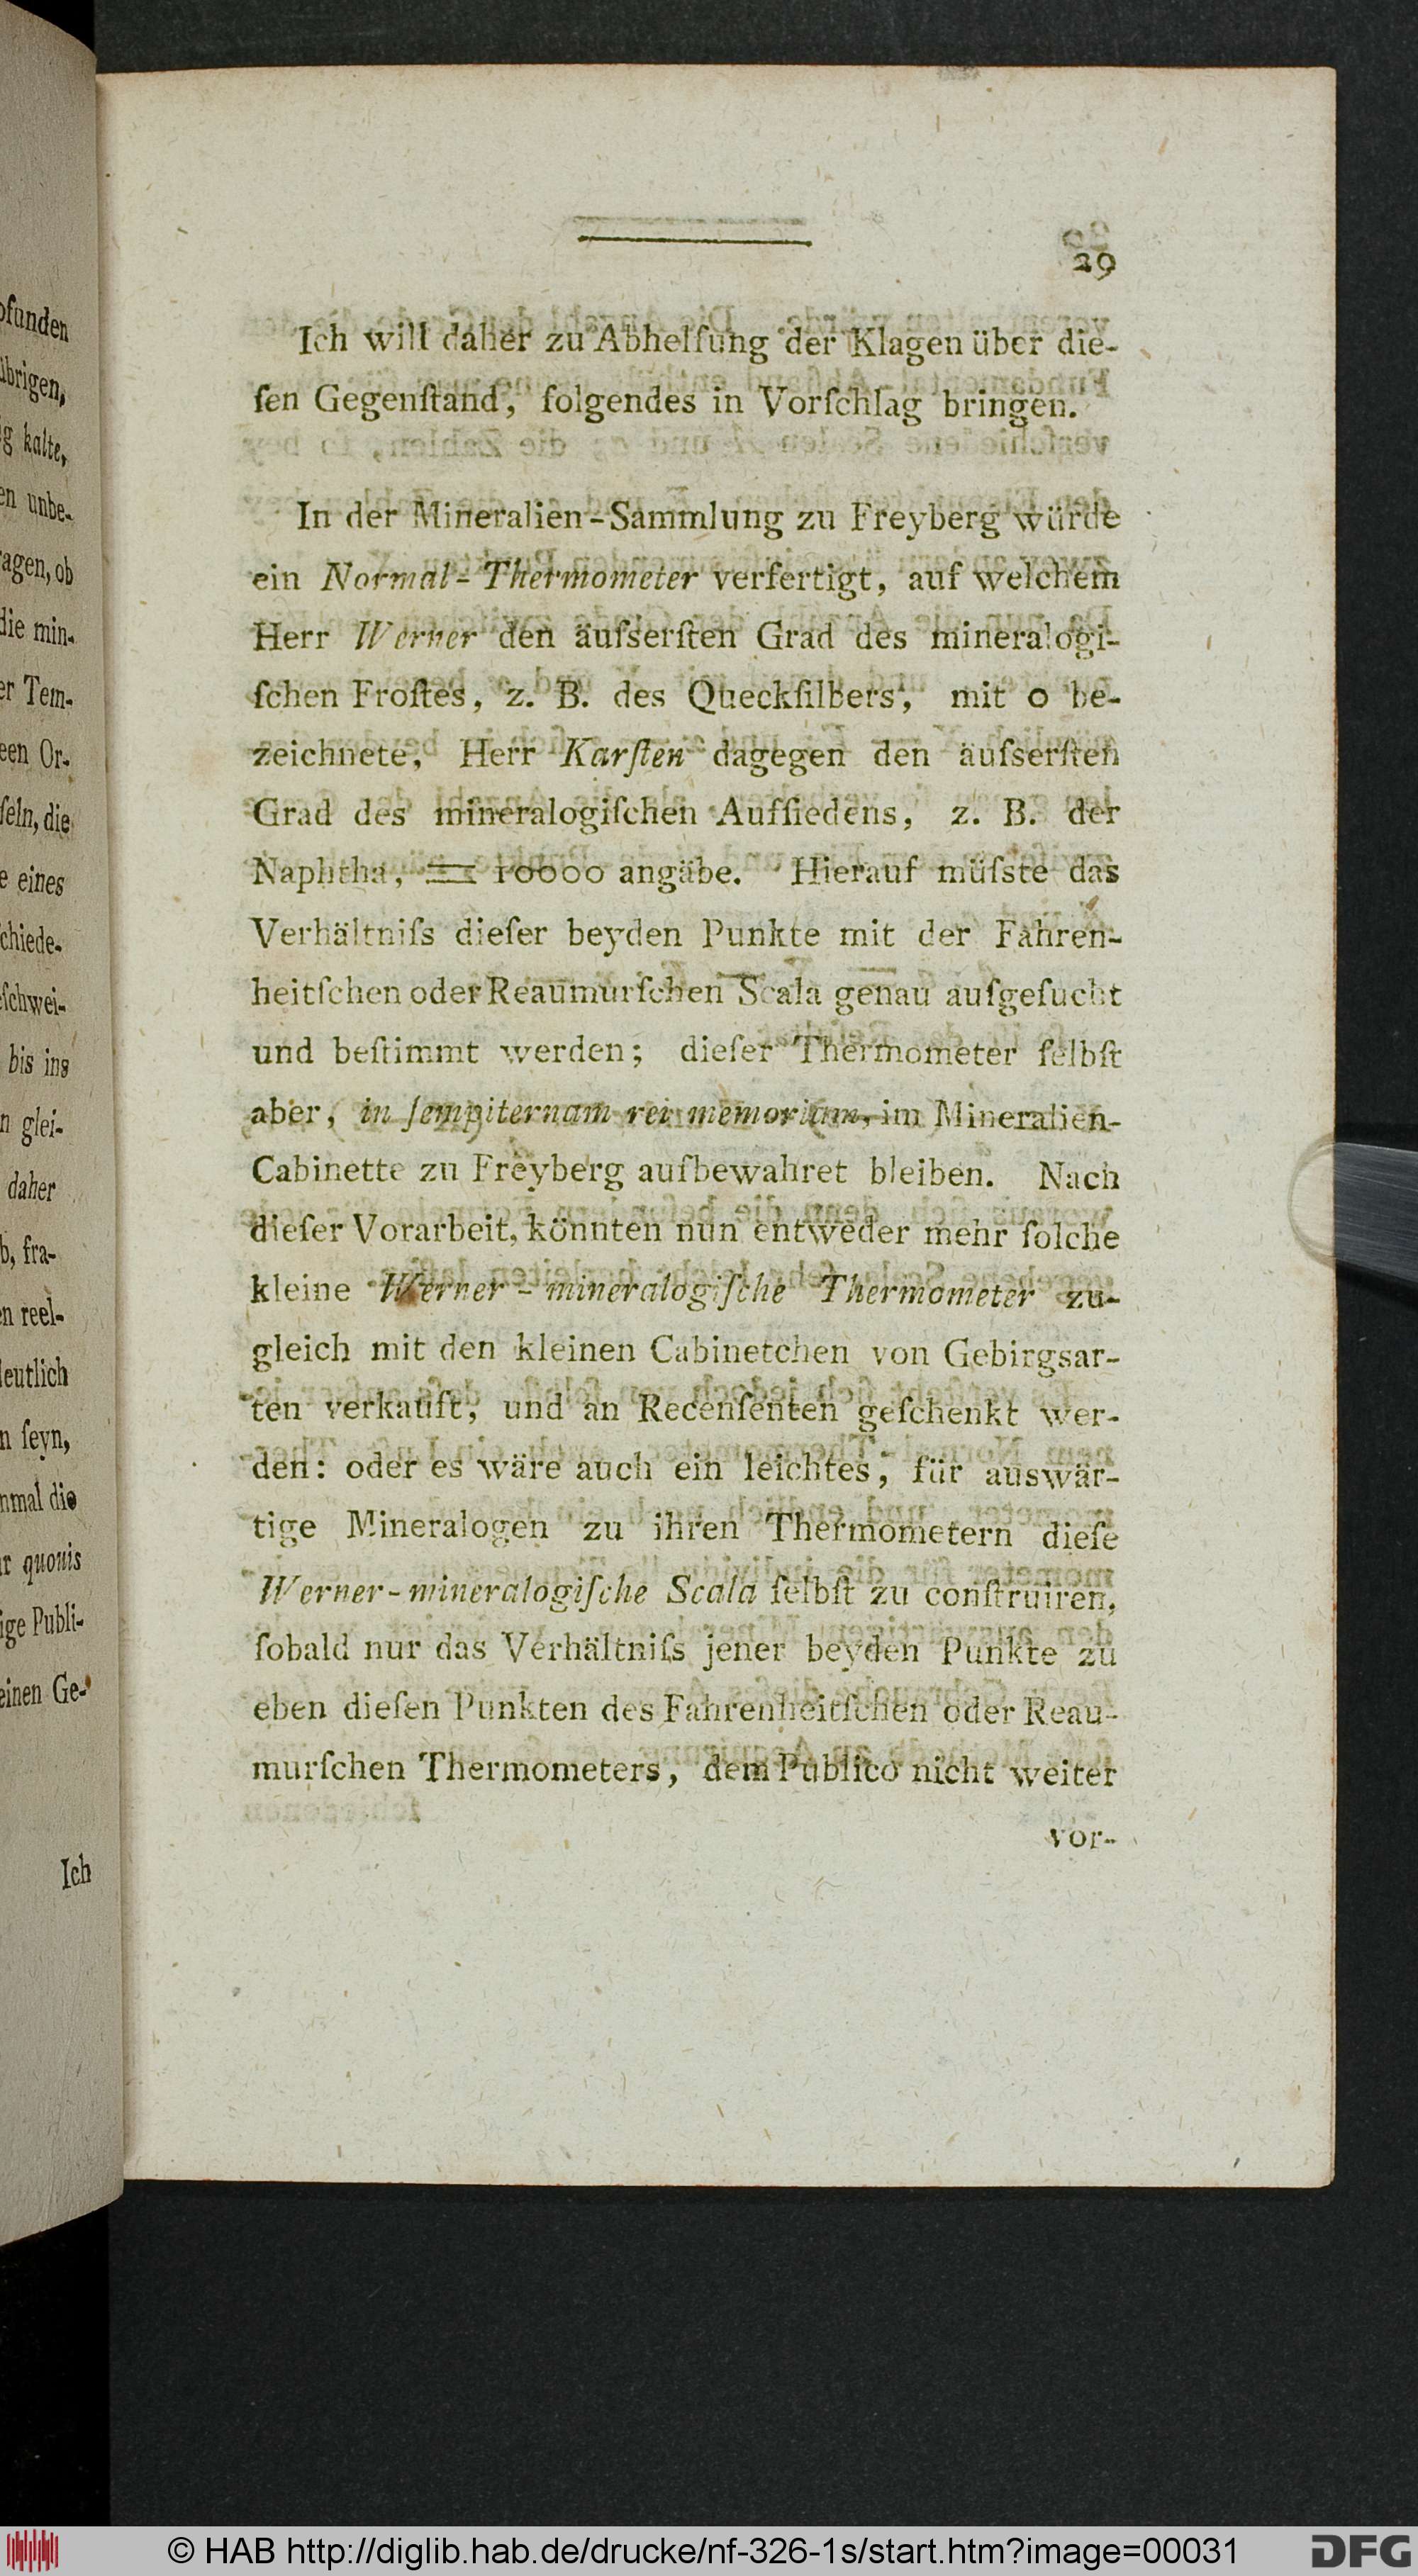 ofunden
übrigen,
g kalte,
en unbe-
agen, ob
die min-
er Tem-
een Or-
ſeln, die
e eines
chiede-
eſchwei-
bis ins
n glei-
daher
b, fra-
n reel-
leutlich
n ſeyn,
nmal die
r quouis
ige Publi-
einen Ge-
Ich
29
Ich will daher zu Abhelfung der Klagen über die-
ſen Gegenſtand, folgendes in Vorſchlag bringen.
In der Mineralien-Sammlung zu Freyberg würde
ein Normal-Thermometer verfertigt, auf welchem
Herr Werner den äuſserſten Grad des mineralogi-
ſchen Froſtes, z. B. des Queckſilbers, mit 0 be-
zeichnete, Herr Karſten dagegen den äuſserſten
Grad des mineralogiſchen Aufſiedens, z. B. der
Naphtha, = 10000 angäbe. Hierauf müſste das
Verhältniſs dieſer beyden Punkte mit der Fahren-
heitſchen oder Reaumurſchen Scala genau aufgeſucht
und beſtimmt werden; dieſer Thermometer ſelbſt
aber, in ſempiternam rei memoriam, im Mineralien-
Cabinette zu Freyberg aufbewahret bleiben. Nach
dieſer Vorarbeit, könnten nun entweder mehr ſolche
kleine Werner-mineralogiſche Thermometer zu-
gleich mit den kleinen Cabinetchen von Gebirgsar-
ten verkauft, und an Recenſenten geſchenkt wer-
den: oder es wäre auch ein leichtes, für auswär-
tige Mineralogen zu ihren Thermometern dieſe
Werner-mineralogiſche Scala ſelbſt zu conſtruiren,
ſobald nur das Verhältniſs jener beyden Punkte zu
eben dieſen Punkten des Fahrenheitſchen oder Reau-
murſchen Thermometers, dem Publico nicht weiter
vor-
© HAB http://diglib.hab.de/drucke/nf-326-1s/start.htm?image=00031
DFG